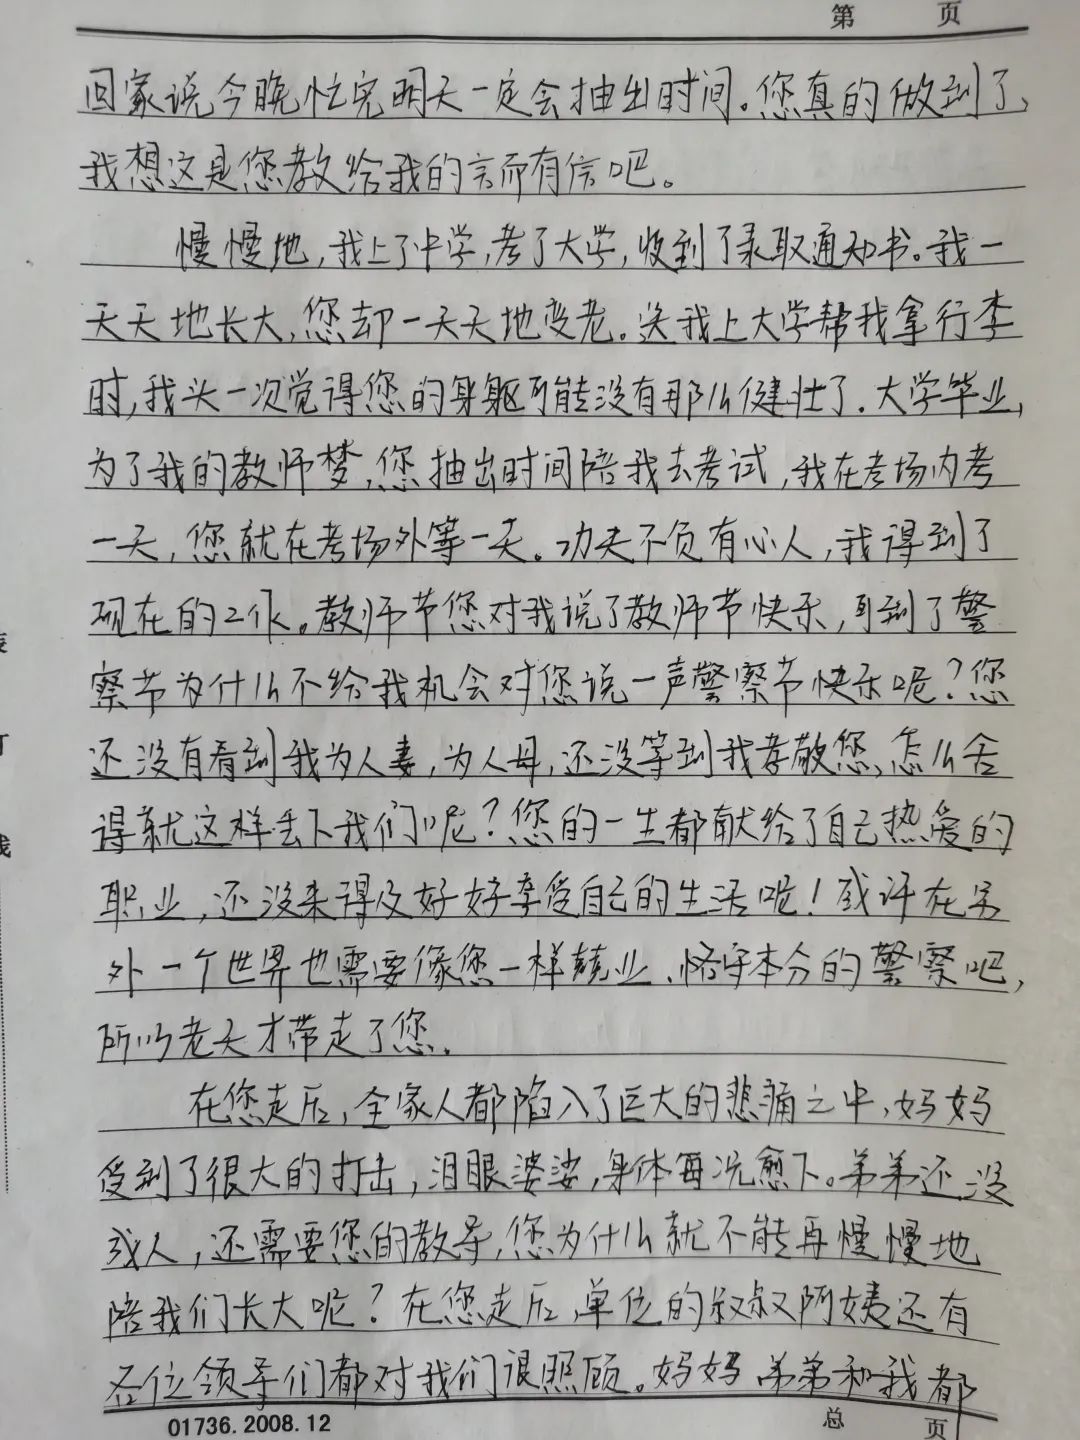 第 页
回家说今晚忙完明天一定会抽出时间。您真的做到了,
我想这是您教给我的言而有信吧。
慢慢地,我上了中学,考了大学,收到了录取通知书。我一
天天地长大,您却一天天地变老。送我上大学帮我拿行李
时,我头一次觉得您的身躯可能没有那么健壮了。大学毕业,
为了我的教师梦,您抽出时间陪我去考试,我在考场内考
一天,您就在考场外等一天。功夫不负有心人,我得到了
现在的工作。教师节您对我说了教师节快乐,可到了警
察节为什么不给我机会对您说一声警察节快乐呢?您
还没有看到我为人妻,为人母,还没等到我孝敬您,怎么舍
得就这样丢下我们呢?您的一生都献给了自己热爱的
职业,还没来得及好好享受自己的生活呢!或许在另
外一个世界也需要像您一样兢业、恪守本分的警察吧,
所以老天才带走了您。
在您走后,全家人都陷入了巨大的悲痛之中,妈妈
受到了很大的打击,泪眼婆娑,身体每况愈下。弟弟还没
成人,还需要您的教导,您为什么就不能再慢慢地
陪我们长大呢?在您走后,单位的叔叔阿姨还有
各位领导们都对我们很照顾。妈妈弟弟和我都
01736.2008.12 总 页